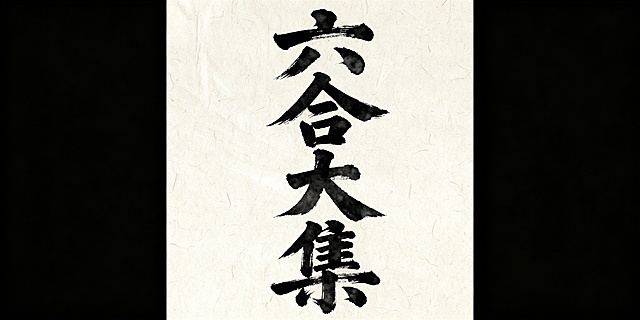 六合大集